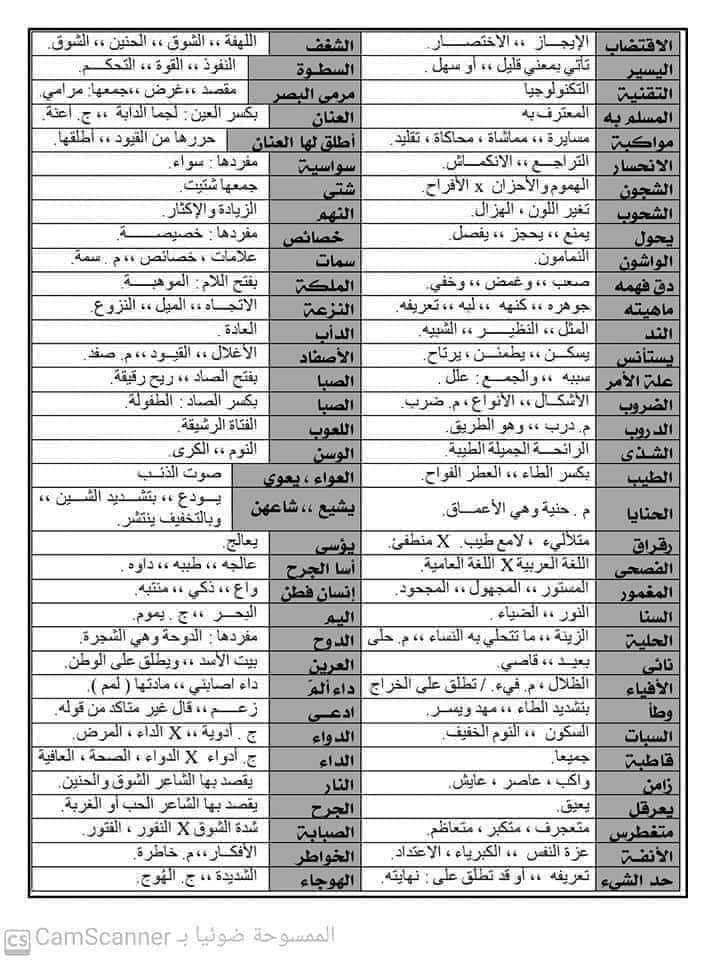 الاقتضاب الإيجاز ،، الاختصار. الشغف اللهفة ،، الشوق ،، الحنين ،، الشوق.
اليسير تأتي بمعني قليل ،، أو سهل . السطوة النفوذ ،، القوة ،، التحكم.
التقنية التكنولوجيا مرمى البصر مقصد ،،غرض ،،جمعها: مرامي.
المسلم به المعترف به العنان بكسر العين: لجما الدابة ،، ج. أعنة.
مواكبة مسايرة ،، مماشاة ، محاكاة ، تقليد. أطلق لها العنان حررها من القيود ،، أطلقها.
الانحسار التراجع ،، الانكماش. سواسية مفردها : سواء.
الشجون الهموم والأحزان x الأفراح. شتى جمعها شتيت.
الشحوب تغير اللون ، الهزال. النهم الزيادة والإكثار.
يحول يمنع ،، يحجز ،، يفصل. خصائص مفردها : خصيصة.
الواشون النمامون. سمات علامات ، خصائص ،، م . سمة.
دق فهمه صعب ،، وغمض ،، وخفي. الملكة بفتح اللام: الموهبة.
ماهيته جوهره ،، كنهه ،، لبه ،، تعريفه. النزعة الاتجاه ،، الميل ،، النزوع.
الند المثل ،، النظير ،، الشبيه. الدأب العادة.
يستأنس يسكن ،، يطمئن ، يرتاح. الأصفاد الأغلال ،، القيود ،، م. صفد.
علة الأمر سببه ،، والجمع : علل . الصبا بفتح الصاد ،، ريح رقيقة.
الضروب الأشكال ،، الأنواع ، م. ضرب. الصبا بكسر الصاد : الطفولة.
الدروب م. درب ،، وهو الطريق. اللعوب الفتاة الرشيقة.
الشذى الرائحة الجميلة الطيبة. الوسن النوم ،، الكرى.
الطيب بكسر الطاء ،، العطر الفواح. العواء ، يعوي صوت الذئب
الحنايا م . حنية وهي الأعماق. يشيع ،، شاعهن يودع ،، بتشديد الشين ،،
وبالتخفيف ينتشر.
رقراق متلأليء ، لامع طيب. X منطفئ. يؤسى يعالج.
الفصحى اللغة العربية X اللغة العامية. أسا الجرح عالجه ،، طببه ،، داوه .
المغمور المستور ،، المجهول ،، المجحود. إنسان فطن واع ،، ذكي ،، منتبه.
السنا النور ،، الضياء . اليم البحر ،، ج . يموم.
الحلية الزينة ،، ما تتحلي به النساء ،، م. حلى الدوح مفردها : الدوحة وهي الشجرة.
نائى بعيد ،، قاصي. العرين بيت الأسد ،، ويطلق على الوطن.
الأفياء الظلال ، م. فيء. / تطلق على الخراج داء ألم داء اصابني ،، مادتها ( لمم ).
وطأ بتشديد الطاء ،، مهد ويسر. ادعى زعم ،، قال غير متاكد من قوله.
السبات السكون ،، النوم الخفيف. الدواء ج . أدوية ،، X الداء ، المرض.
قاطبة جميعا. الداء ج. أدواء X الدواء ، الصحة ، العافية
زامن واكب ، عاصر ، عايش. النار يقصد بها الشاعر الشوق والحنين.
يعرقل يعيق. الجرح يقصد بها الشاعر الحب أو الغربة.
متغطرس متعجرف ، متكبر ، متعاظم. الصبابة شدة الشوق X النفور ، الفتور.
الأنفة عزة النفس ،، الكبرياء ، الاعتداد. الخواطر الأفكار،، م. خاطرة.
حد الشيء تعريفه ،، أو قد تطلق على : نهايته. الهوجاء الشديدة ،، ج. الهُوج.
CS الممسوحة ضوئيا بـ CamScanner